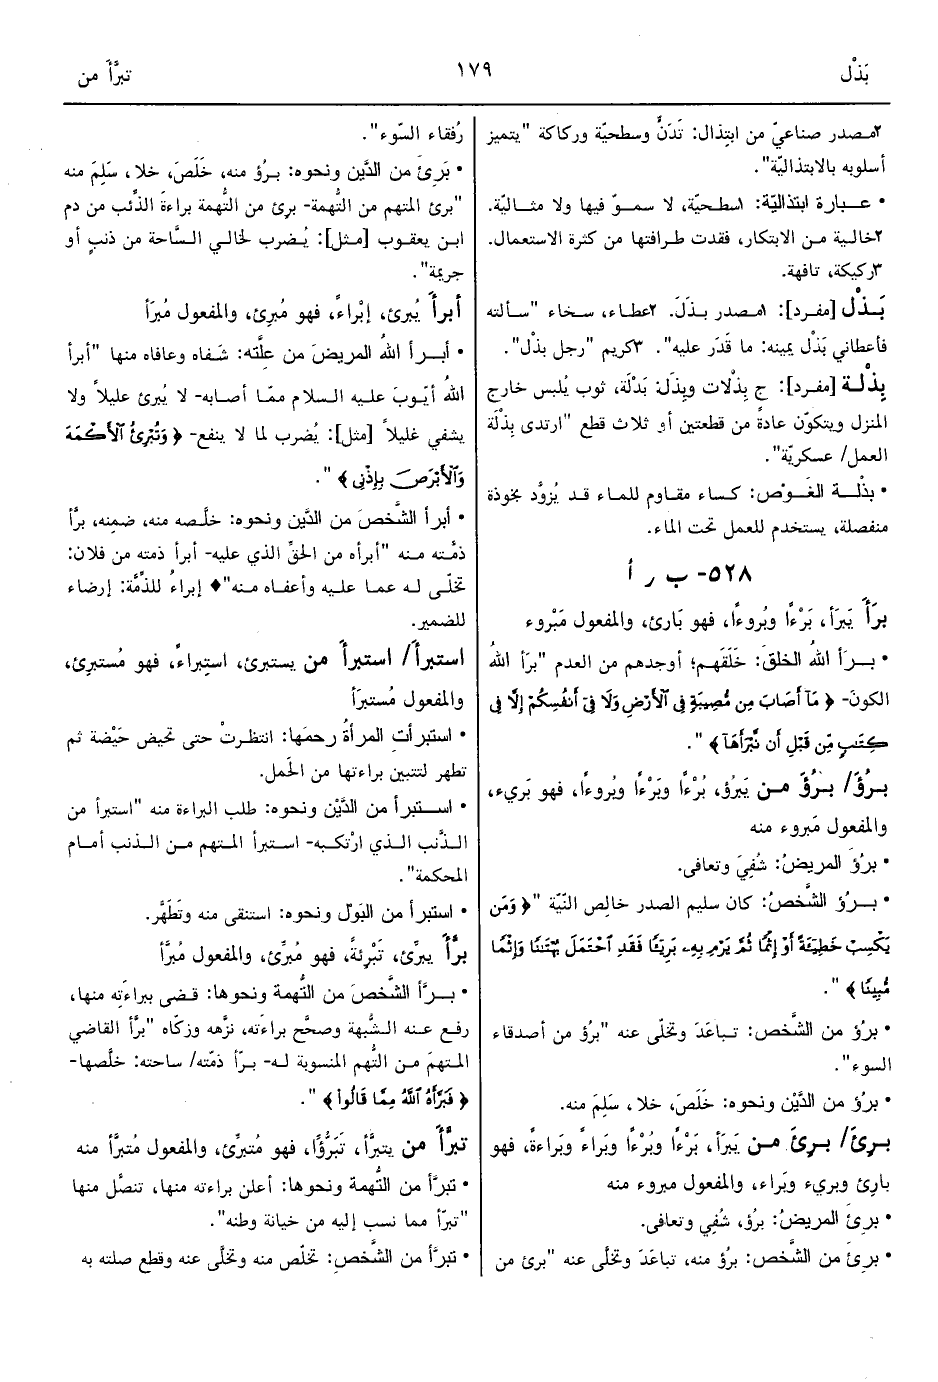 بَذْل
١٧٩
تبرَّأَ من
٢مصدر صناعيّ من ابتِذال: تَدَنٍّ وسطحيّة وركاكة "يتميز
أسلوبه بالابتذاليّة".
• عبارة ابتذاليّة: ١سطحيّة، لا سموّ فيها ولا مثاليّة.
٢خالية من الابتكار، فقدت طرافتها من كثرة الاستعمال.
٣ركيكة، تافهة.
بَذْل [مفرد]: ١مصدر بذَلَ. ٢عطاء، سخاء "سألته
فأعطاني بَذْل يمينه: ما قَدَر عليه". ٣كريم "رجل بذْل".
بِذْلة [مفرد]: ج بِذْلات وبِذَل: بَدْلَة، ثوب يُلبس خارج
المنزل ويتكوّن عادةً من قطعتين أو ثلاث قطع "ارتدى بِذْلَة
العمل/ عسكريّة".
• بذْلة الغَوْص: كساء مقاوم للماء قد يُزوَّد بخوذة
منفصلة، يستخدم للعمل تحت الماء.
٥٢٨- ب ر أ
برَأَ يَبرَأ، بَرْءًا وبُروءًا، فهو بَارِئ، والمفعول مَبْروء
• برَأَ اللهُ الخلقَ: خَلَقَهم؛ أوجدهم من العدم "برَأ اللهُ
الكونَ- ﴿ مَآ أَصَابَ مِن مُّصِيبَةٍ فِي ٱلْأَرْضِ وَلَا فِيٓ أَنفُسِكُمْ إِلَّا فِي
كِتَٰبٍ مِّن قَبْلِ أَن نَّبْرَأَهَآ ﴾ ".
برُؤَ/ برُؤَ من يَبرُؤ، بُرْءًا وبَرْءًا وبُروءًا، فهو بَريء،
والمفعول مَبروء منه
• برُؤ المريضُ: شُفِيَ وتعافى.
• برُؤ الشَّخصُ: كان سليم الصدر خالِص النّيّة "﴿ وَمَن
يَكْسِبْ خَطِيٓـَٔةً أَوْ إِثْمًا ثُمَّ يَرْمِ بِهِۦ بَرِيٓـًٔا فَقَدِ ٱحْتَمَلَ بُهْتَٰنًا وَإِثْمًا
مُّبِينًا ﴾ ".
• برُؤ من الشَّخص: تباعَدَ وتخلّى عنه "برُؤ من أصدقاء
السوء".
• برُؤ من الدَّيْن ونحوه: خَلَصَ، خلا، سَلِمَ منه.
برِئَ/ برِئَ من يَبرَأ، بَرْءًا وبُرْءًا وبَراءً وبَراءةً، فهو
بارِئ وبريء وبَراء، والمفعول مبروء منه
• برِئَ المريضُ: برُؤ، شُفِي وتعافى.
• برِئَ من الشَّخص: برُؤ منه، تباعَدَ وتخلَّى عنه "برئ من
رُفقاء السّوء".
• بَرِئَ من الدَّين ونحوه: برُؤ منه، خَلَصَ، خلا، سَلِمَ منه
"برئ المتهم من التُّهمة- برئ من التُّهمة براءةَ الذِّئب من دم
ابن يعقوب [مثل]: يُضرب لخالي السَّاحة من ذنبٍ أو
جريمة".
أبرأَ يُبرئ، إبْراءً، فهو مُبرِئ، والمفعول مُبرَأ
• أبرأ اللهُ المريضَ من علّته: شَفاه وعافاه منها "أبرأ
اللهُ أيّوبَ عليه السلام ممّا أصابه- لا يُبرئ عليلاً ولا
يشفي غليلاً [مثل]: يُضرب لما لا ينفع- ﴿ وَتُبْرِئُ ٱلْأَكْمَهَ
وَٱلْأَبْرَصَ بِإِذْنِي ﴾ ".
• أبرأ الشَّخصَ من الدَّين ونحوه: خلَّصه منه، ضمِنه، برَّأ
ذمَّته منه "أبرأه من الحقِّ الذي عليه- أبرأ ذمته من فلان:
تخلّى له عما عليه وأعفاه منه"♦ إبراءُ للذِّمَّة: إرضاء
للضمير.
استبرأَ/ استبرأَ من يستبرئ، استِبراءً، فهو مُستبرِئ،
والمفعول مُستبرَأ
• استبرأتِ المرأةُ رحمَها: انتظرتْ حتى تحيض حَيْضة ثم
تطهر لتتبين براءتها من الحَمل.
• استبرأ من الدَّيْن ونحوه: طلب البراءة منه "استبرأ من
الذَّنب الذي ارْتكبه- استبرأ المتهم من الذنب أمام
المحكمة".
• استبرأ من البَوْل ونحوه: استنقى منه وتَطَهَّر.
برَّأَ يبرِّئ، تَبْرِئةً، فهو مُبرِّئ، والمفعول مُبرَّأ
• برَّأ الشَّخصَ من التُّهمة ونحوها: قضى ببراءَته منها،
رفع عنه الشُّبهة وصحَّح براءَته، نزَّهه وزكّاه "برَّأ القاضي
المتهمَ من التُّهم المنسوبة له- برّأ ذمّته/ ساحته: خلّصها-
﴿ فَبَرَّأَهُ ٱللَّهُ مِمَّا قَالُوا۟ ﴾ ".
تبرَّأَ من يتبرَّأ، تَبَرُّؤًا، فهو مُتبرِّئ، والمفعول مُتبرَّأ منه
• تبرَّأ من التُّهمة ونحوها: أعلن براءته منها، تنصَّل منها
"تبرّأ مما نسب إليه من خيانة وطنه".
• تبرَّأ من الشَّخص: تخلّص منه وتخلَّى عنه وقطع صلته به